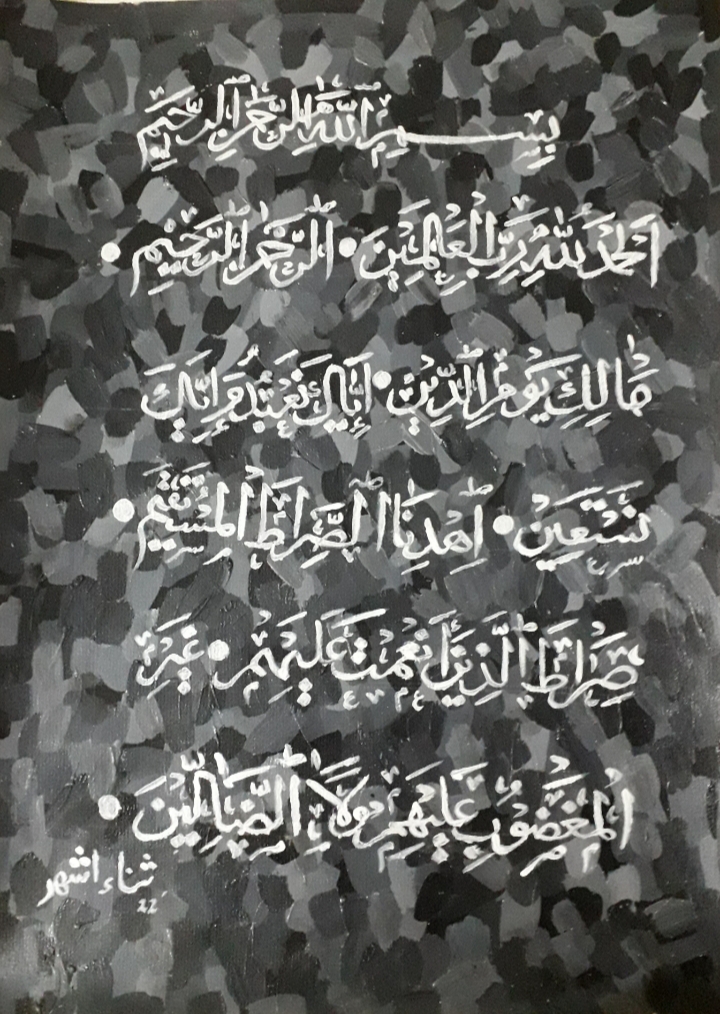 بِسْمِ اللَّهِ الرَّحْمَٰنِ الرَّحِيمِ
اَلْحَمْدُ لِلَّهِ رَبِّ الْعَالَمِينَ • الرَّحْمَٰنِ الرَّحِيمِ •
مَالِكِ يَوْمِ الدِّينِ • إِيَّاكَ نَعْبُدُ وَإِيَّاكَ
نَسْتَعِينُ • اِهْدِنَا الصِّرَاطَ الْمُسْتَقِيمَ •
صِرَاطَ الَّذِينَ أَنْعَمْتَ عَلَيْهِمْ • غَيْرِ
الْمَغْضُوبِ عَلَيْهِمْ وَلَا الضَّالِّينَ •
ثناء اشهر
22